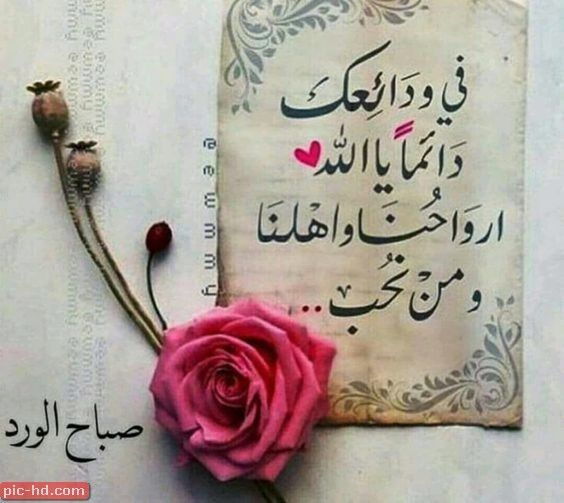 في ودَائِعك
دَائماً يا الله
اروَاحُنَا واهْلنَا
ومنْ نحُب ..
صباح الورد
@ewmmmy
pic-hd.com